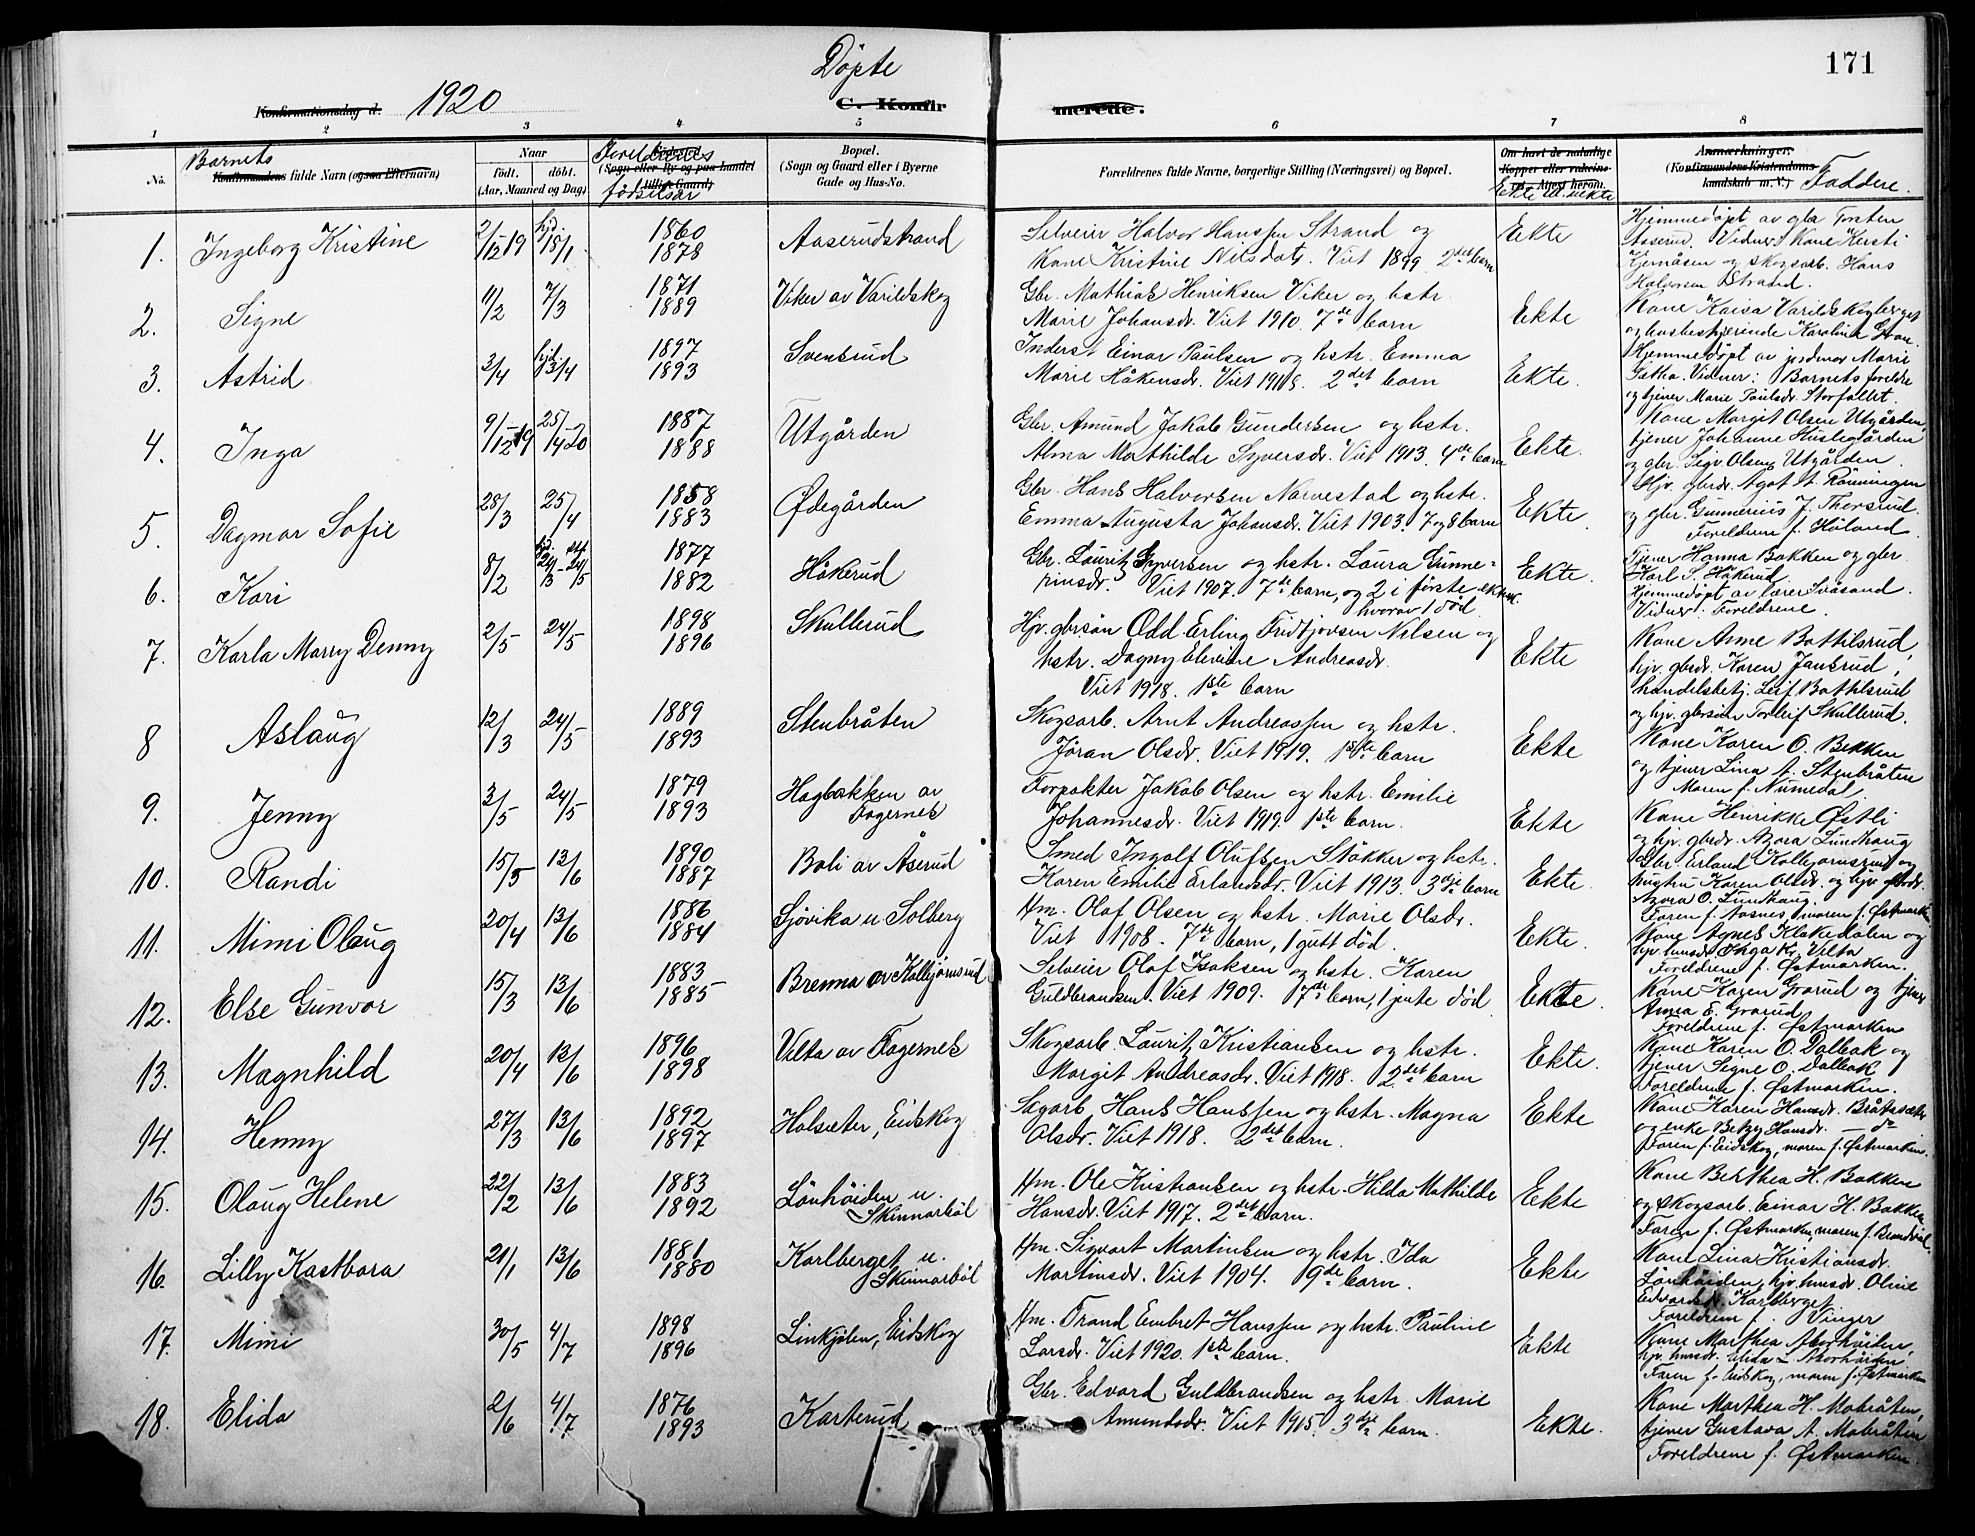 171
Døpte
Konfirmationsdag d. 1920 C. Konfirmerede.
1 2 3 4 5 6 7 8
No. Barnets Konfirmandens fulde Navn (ogsaa Efternavn)
Naar
Født. døbt.
(Aar, Maaned og Dag)
Foreldrenes fødselsår
Fødested
(Sogn eller By og paa landet tillige Gaard)
Bopæl.
(Sogn og Gaard eller i Byerne Gade og Hus-No.
Forældrenes fulde Navne, borgerlige Stilling (Næringsvei) og Bopæl.
Om havt de naturlige Kopper eller vakcineret. Attest herom.
Ekte el. uekte
Anmærkninger.
(Konfirmandens Kristendomskundskab m. V.) Faddere.
1. Ingeborg Kristine 2/12 19 hjd. 18/1 1860 1878 Aaserudstrand
Selveier Halvor Hanssen Strand og
Kone Kristine Nilsdatr. Viet 1899. 2det barn
Ekte
Hjemmedøpt av gbr Torsten
Aaserud. Vidner: Kone Kersti
Kjernåsen og skogsarb. Hans
Halvorsen Strand.
2. Signe 11/2 7/3 1871 1889 Viker av Varildskog
Gbr. Mathias Henriksen Viker og hstr.
Marie Johansdr. Viet 1910. 7de barn
Ekte
Kone Kaisa Varildskogberget
og husbestyrerinde Karolina Gran.
3. Astrid 2/4 hjd. 3/4 1897 1893 Svensrud
Inderst Einar Paulsen og hstr. Emma
Marie Håkensdr. Viet 1918. 2det barn
Ekte.
Hjemmedøpt av jordmor Marie
Vidner: Barnets foreldre
og tjener Marie Paulsdr. Storfallet.
4. Inga 9/12 19 25/4-20 1887 1888 Utgården
Gbr. Amund Jakob Gundersen og hstr.
Alma Mathilde Syversdr. Viet 1913. 4de barn
Ekte.
Kone Margit Olsen Utgården,
tjener Johanne Huslegården
og gbr. Sigv. Olsen Utgården.
5. Dagmar Sofie 28/3 25/4 1858 1883 Ødegården
Gbr. Hans Halvorsen Narvestad og hstr.
Emma Augusta Johansdr. Viet 1903. 7 og 8 barn
Ekte.
Hjv. gbrdr. Agot St. Rønningen
og gbr. Gunnerius J. Thorsrud.
Foreldrene f. Høland.
6. Kari 8/2 hjd. 21/3 24/5 1877 1882 Håkerud
Gbr. Lauritz Syversen og hstr. Laura Gunne-
riusdr. Viet 1907. 7de barn, og 2 i første ektesk.
hvorav 1 død
Ekte.
Tjener Hanna Bakken og gbr.
Karl S. Håkerud.
Hjemmedøpt av lærer Svåsand.
Vidner: Foreldrene.
7. Karla Marry Denny 2/5 24/5 1898 1896 Skullerud
Hjv. gbrsøn Odd Erling Fridtjovsen Nilsen og
hstr. Dagny Elevine Andreasdr.
Viet 1918. 1ste barn
Ekte
Kone Anne Bottilsrud,
hjv. gbrdr. Karen Jansrud,
handelsbetj. Leif Bottilsrud
og hjv. gbrsøn Torleif Skullerud.
8 Aslaug 12/3 24/5 1889 1893 Stenbråten
Skogsarb. Arnt Andreassen og hstr.
Jøran Olsdr. Viet 1919. 1ste barn
Ekte
Kone Karen O. Bekken
og tjener Lina A. Stenbråten
Moren f. Numedal.
9. Jenny 3/5 24/5 1879 1893 Hagbakken av Fagernes
Forpakter Jakob Olsen og hstr. Emilie
Johannesdr. Viet 1919. 1ste barn.
Ekte
Kone Henrikke Østli
og hjv. gbrdr. Azora Lundhaug
10. Randi 15/5 13/6 1890 1887 Boli av Åserud
Smed Ingolf Olufsen Støkker og hstr.
Karen Emilie Erlandsdr. Viet 1913. 3dje barn
Ekte.
Gbr. Erland Kolbjørnsrud og
hustru Karen Olsdr. og hjv. gbrdr.
Azora O. Lundhaug.
Faren f. Aasnes, moren f. Østmarken
11. Mimi Olaug 20/4 13/6 1886 1884 Sjøvika u. Solberg
Hm. Olaf Olsen og hstr. Marie Olsdr.
Viet 1908. 7de barn, 1 gutt død.
Ekte.
Kone Agnes Klakedalen og
hjv. hmsdr. Inga K. Velta
Foreldrene f. Østmarken.
12. Else Gunvor 15/3 13/6 1883 1885 Brenna av Kolbjørnsrud
Selveier Olaf Isaksen og hstr. Karen
Guldbrandsen. Viet 1909. 7de barn, 1 jente død.
Ekte.
Kone Karen Grarud og tjener
Anna E. Grarud
Foreldrene f. Østmarken
13. Magnhild 20/4 13/6 1896 1898 Velta av Fagernes
Skogsarb. Lauritz Kristiansen og hstr.
Margit Andreasdr. Viet 1918. 2det barn
Ekte.
Kone Karen O. Dalbak og
tjener Signe O. Dalbak
Foreldrene f. Østmarken.
14. Henny 27/3 13/6 1892 1897 Holsæter, Eidskog
Sagarb. Hans Hanssen og hstr. Magna
Olsdr. Viet 1918. 2det barn.
Ekte
Kone Karen Hansdr. Bråtesæter
og enke Betzy Hansdr. — do
Faren f. Eidskog, moren f. Østmarken.
15. Olaug Helene 22/2 13/6 1883 1892 Lönhøiden u. Skinnarbøl
Hm. Ole Kristiansen og hstr. Hilda Mathilde
Hansdr. Viet 1917. 2det barn.
Ekte
Kone Berthea H. Bakken
og skogsarb. Einar H. Bakken
Faren f. Østmarken, moren f. Brandval.
16. Lilly Kastbora 21/1 13/6 1881 1880 Karlberget u. Skinnarbøl
Hm. Sigvart Martinsen og hstr. Ida
Martinsdr. Viet 1904. 9de barn.
Ekte
Kone Lina Kristiansdr.
Lönhøiden, hjv. hmsdr. Oline
Edvardsdr. Karlberget
Foreldrene f. Vinger
17. Mimi 30/5 4/7 1898 1896 Linkjølen, Eidskog
Hm. Trand Embret Hanssen og hstr. Pauline
Larsdr. Viet 1920. 1ste barn.
Ekte
Kone Marthea Aborhøiden,
hjv. hmsdr. Elida — Aborhøiden
Faren f. Eidskog, moren f. Østmarken
18. Elida 2/6 4/7 1876 1893 Karterud
Gbr. Edvard Guldbrandsen og hstr. Marie
Amundsdr. Viet 1915. 3dje barn.
Ekte.
Kone Marthea H. Mobråten,
tjener Gustava A. Mobråten
Foreldrene f. Østmarken.